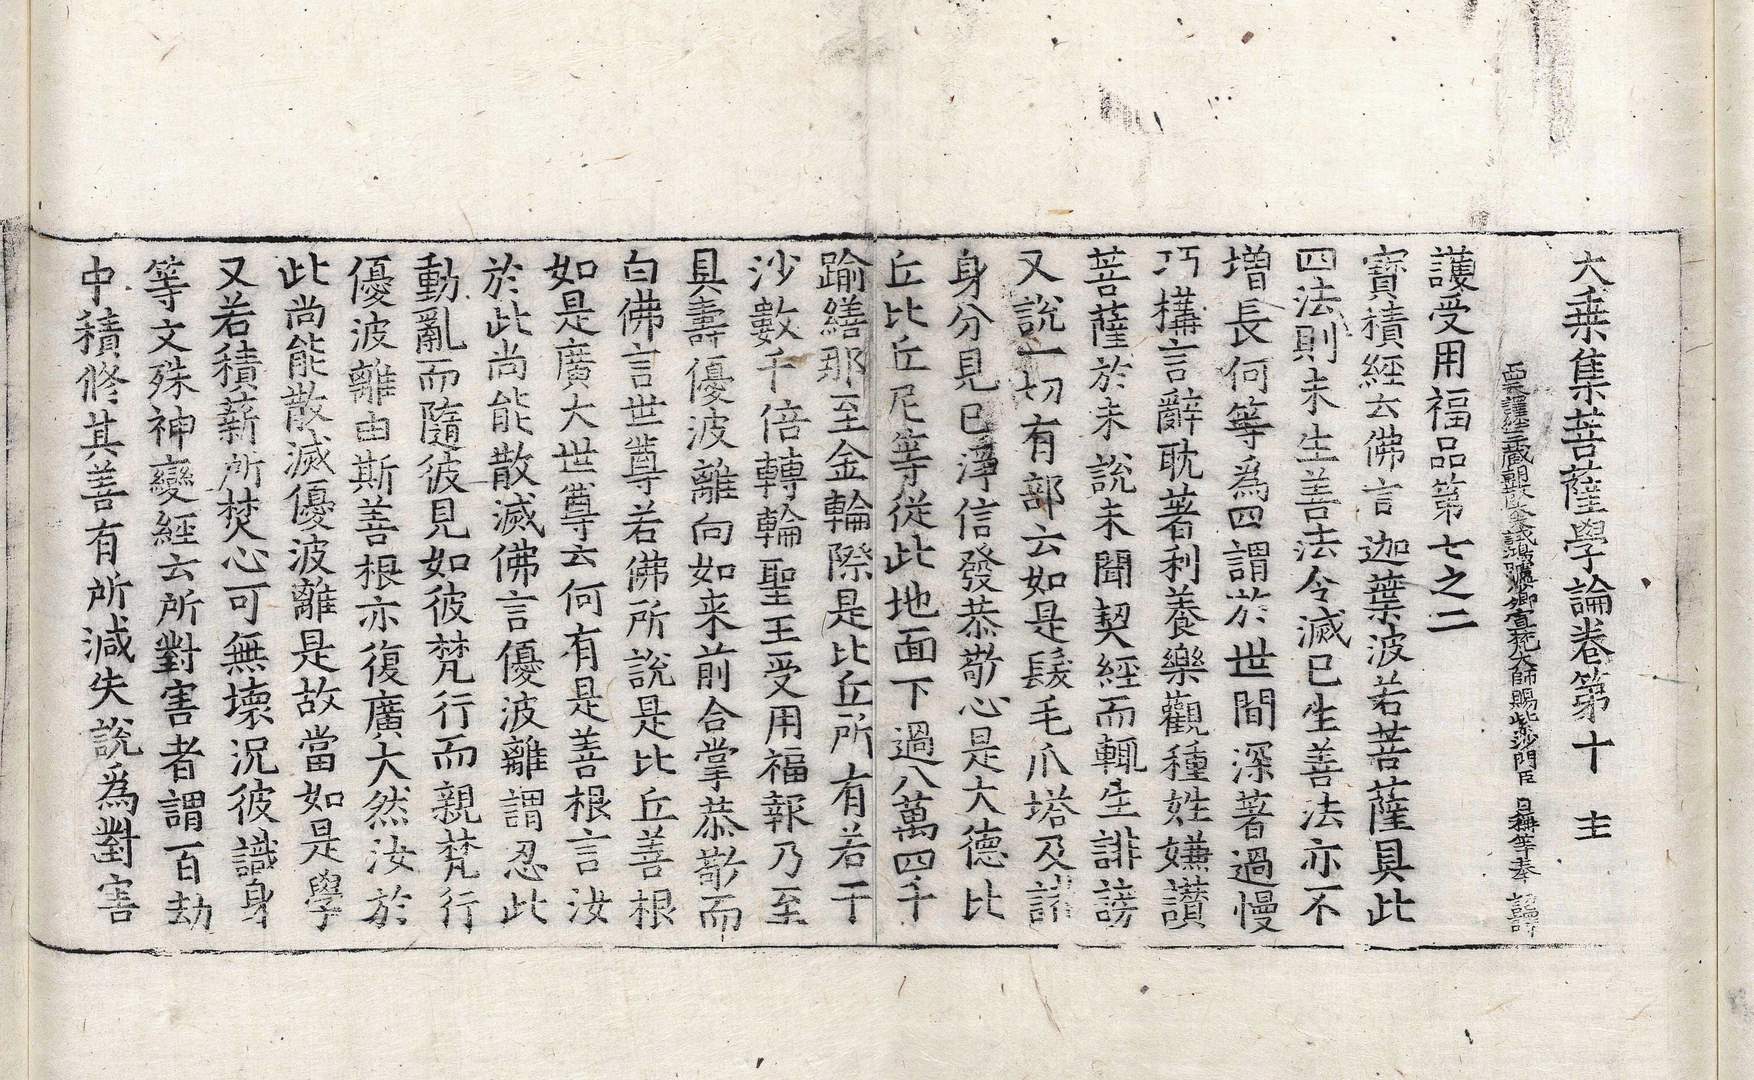 大乗集菩薩學論卷第十 主
西天譯經三藏朝散大夫試鴻臚少卿宣梵大師賜紫沙門臣 日稱等奉 詔譯
護受用福品第七之二
寶積經云佛言迦葉波若菩薩具此
四法則未生善法令滅已生善法亦不
增長何等為四謂於世間深著過慢
巧構言辭耽著利養樂觀種姓嫌讃
菩薩於未說未聞契經而輒生誹謗
又說一切有部云如是髮毛爪塔及諸
身分見已淨信發恭敬心是大德比
丘比丘尼等從此地面下過八萬四千
踰繕那至金輪際是比丘所有若干
沙數千倍轉輪聖王受用福報乃至
具壽優波離向如来前合掌恭敬而
白佛言世尊若佛所說是比丘善根
如是廣大世尊云何有是善根言汝
於此尚能散滅佛言優波離謂忍此
動亂而隨彼見如彼梵行而親梵行
優波離由斯善根亦復廣大然汝於
此尚能散滅優波離是故當如是學
又若積薪所焚心可無壞況彼識身
等文殊神變經云所對害者謂百劫
中積修其善有所減失說為對害